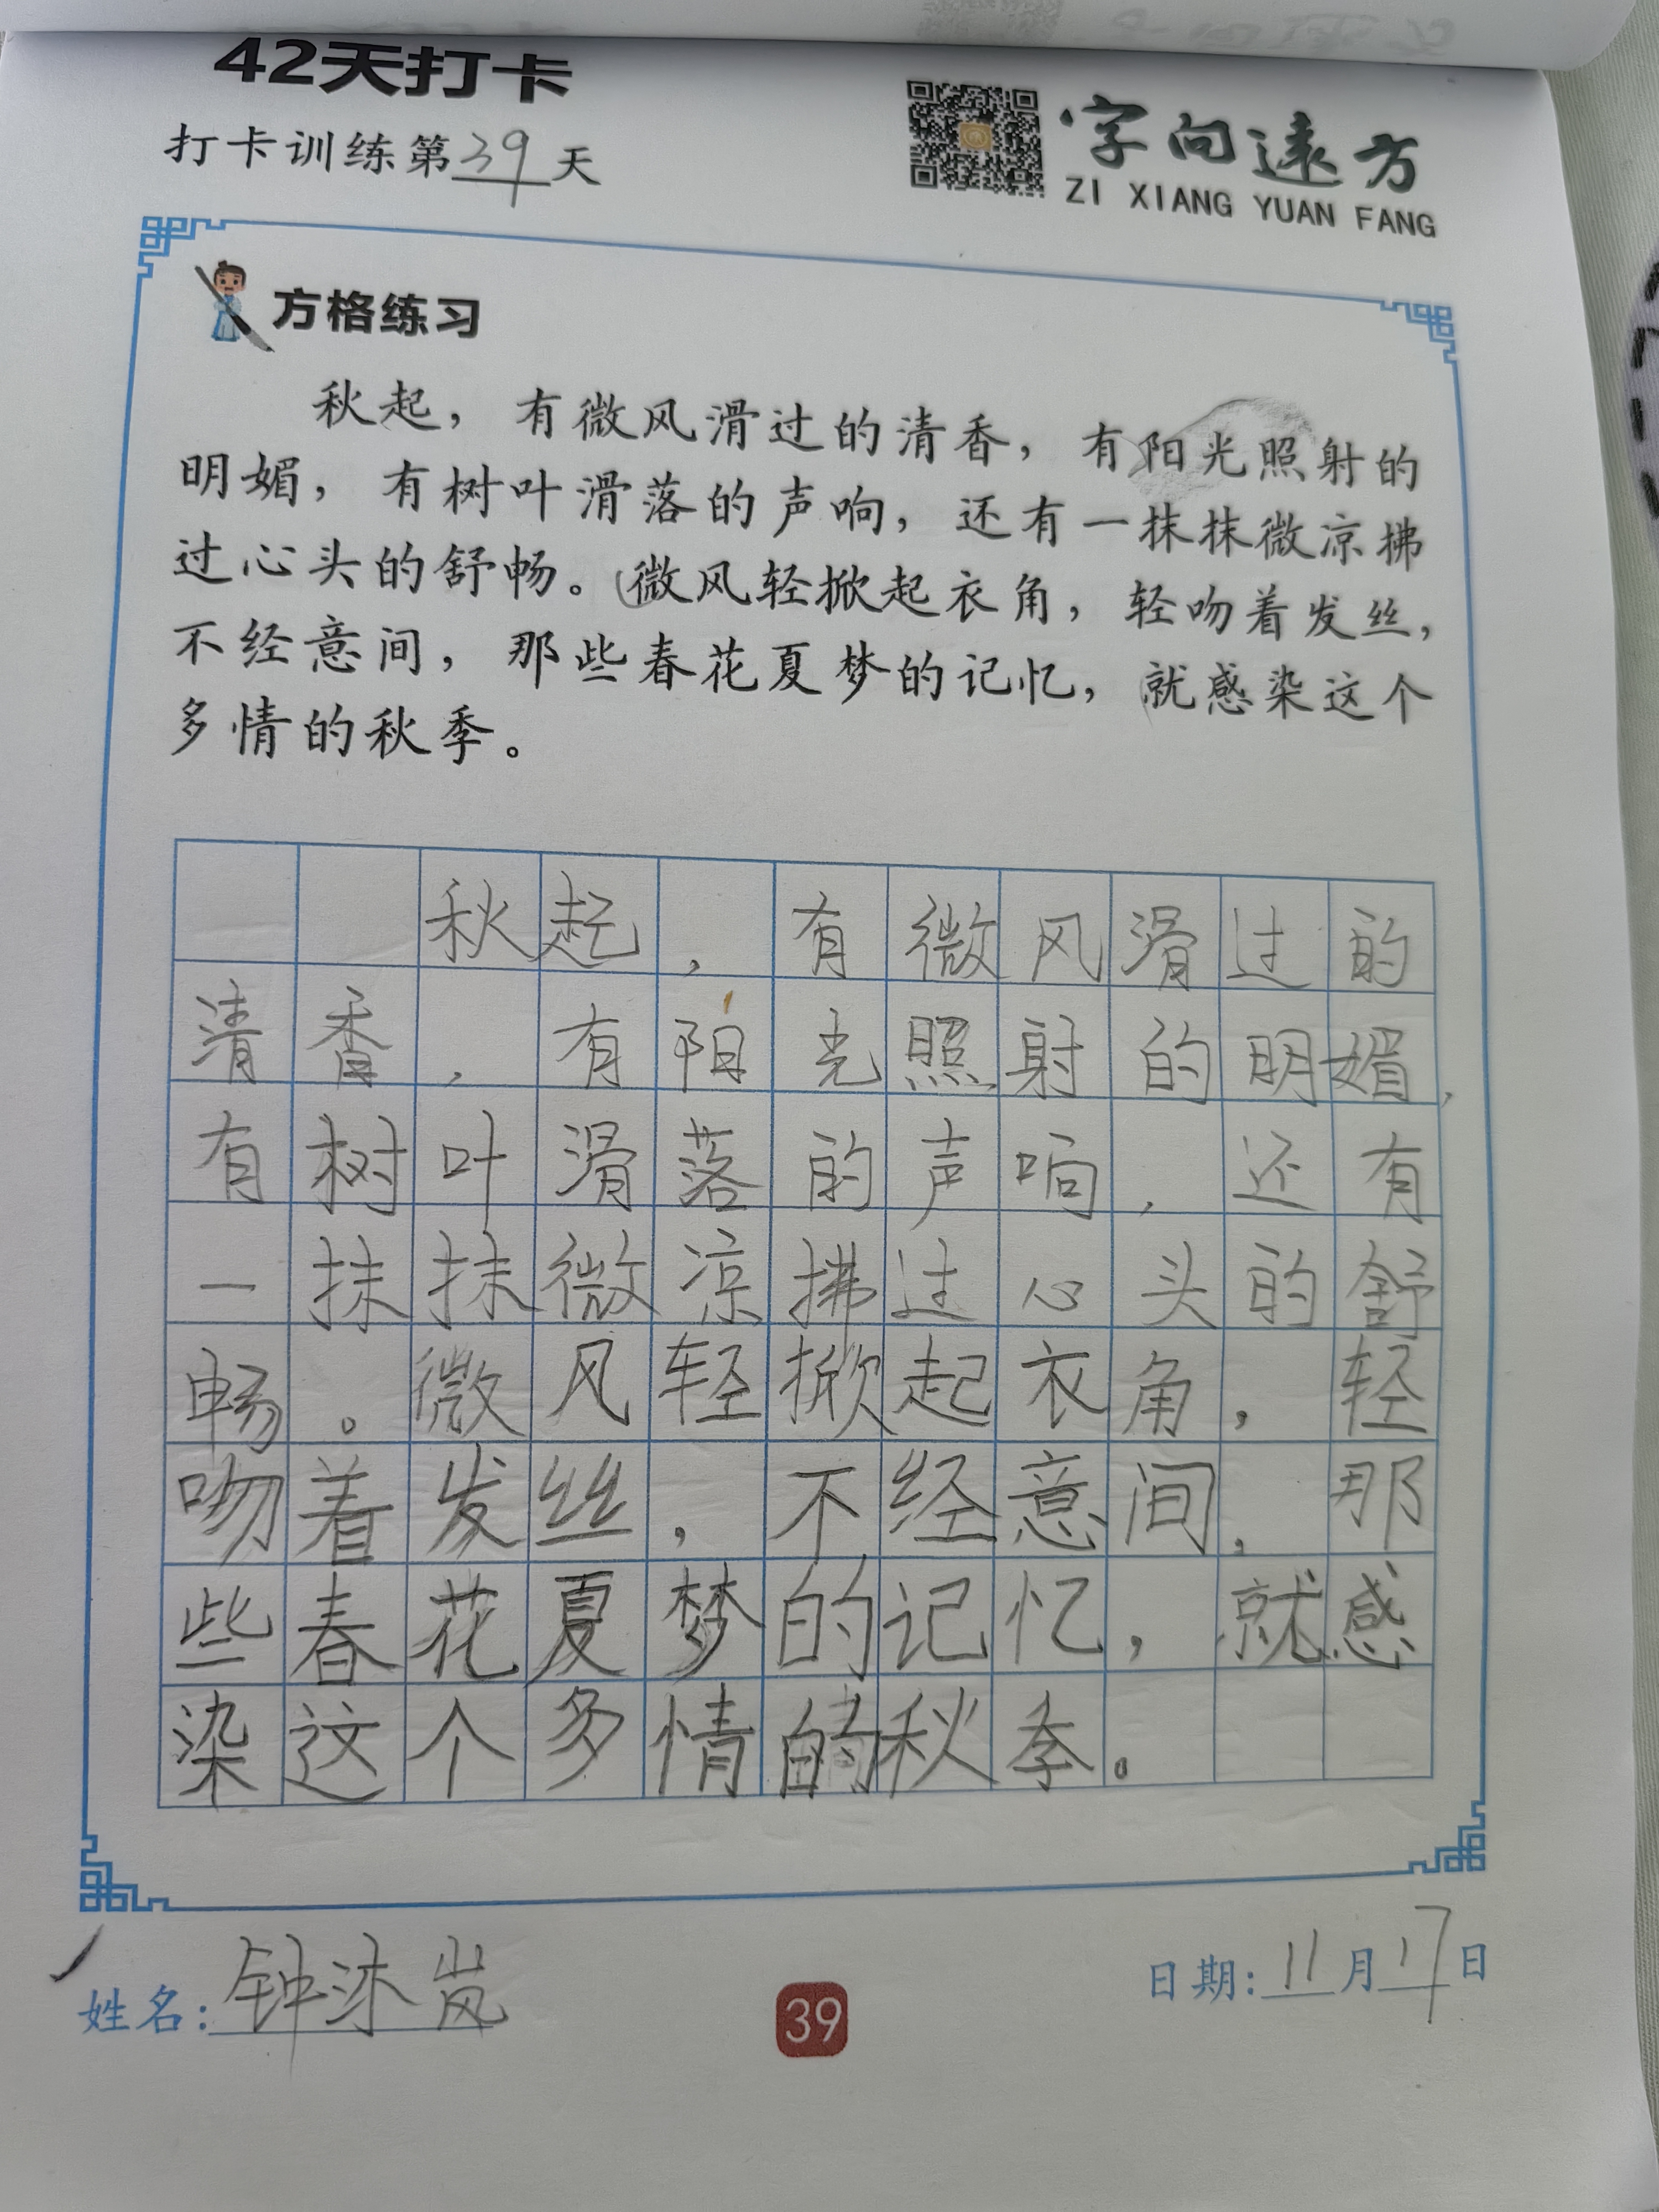 42天打卡
打卡训练第39天
字向远方
ZI XIANG YUAN FANG
方格练习
秋起，有微风滑过的清香，有阳光照射的
明媚，有树叶滑落的声响，还有一抹抹微凉拂
过心头的舒畅。微风轻掀起衣角，轻吻着发丝，
不经意间，那些春花夏梦的记忆，就感染这个
多情的秋季。
秋起，有微风滑过的
清香，有阳光照射的明媚，
有树叶滑落的声响，还有
一抹抹微凉拂过心头的舒
畅。微风轻掀起衣角，轻
吻着发丝，不经意间，那
些春花夏梦的记忆，就感
染这个多情的秋季。
姓名：钟沐岚
39
日期：11月17日